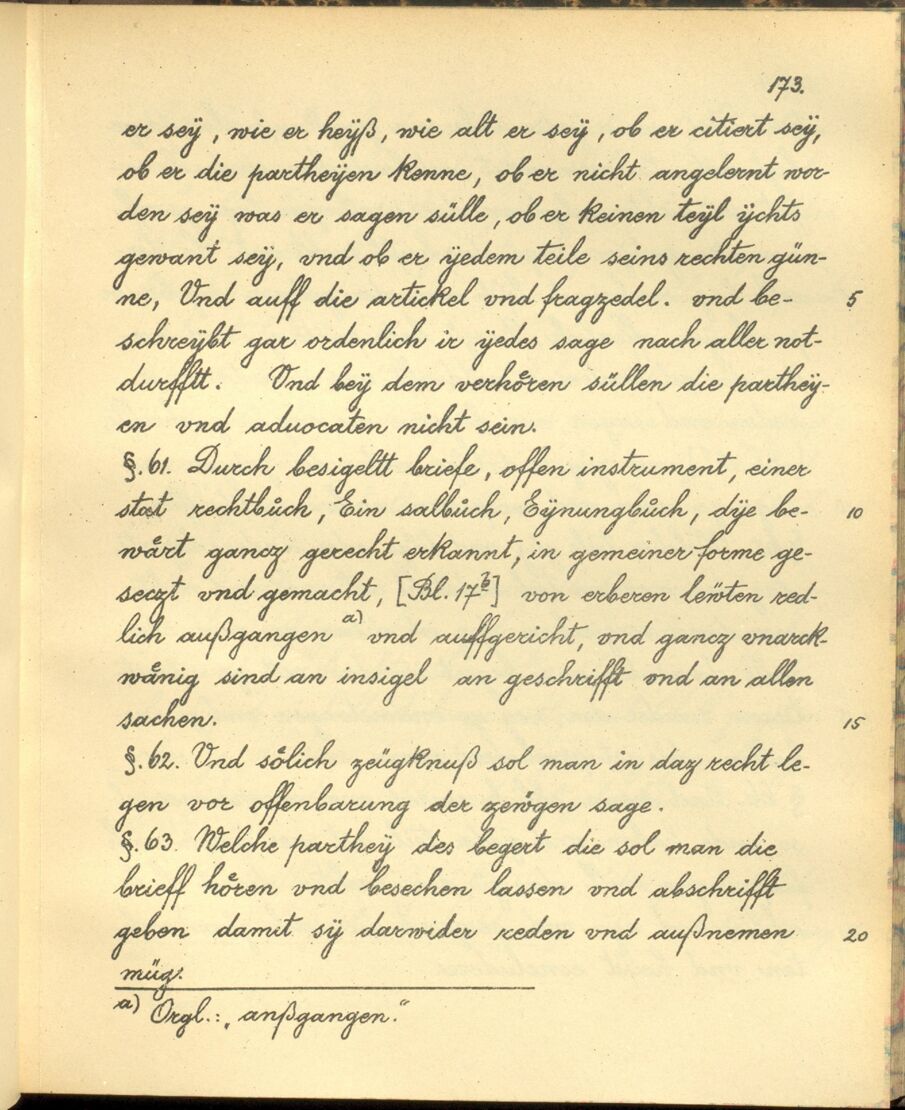 173.
er seÿ, wie er heÿß, wie alt er seÿ, ob er citiert seÿ,
ob er die partheÿen kenne, ob er nicht angelernt wor-
den seÿ was er sagen sülle, ob er keinen teÿl ÿchts
gewant seÿ, vnd ob er ÿedem teile seins rechten gün-
ne, Vnd auff die artickel vnd fragzedel. vnd be- 5
schreÿbt gar ordenlich ir ÿedes sage nach aller not-
durfftt. Vnd beÿ dem verhoͤren süllen die partheÿ-
en vnd aduocaten nicht sein.
§. 61. Durch besigeltt briefe, offen instrument, einer
stat rechtbuͦch, Ein salbuͦch, Eÿnungbuͦch, dÿe be- 10
waͤrt gancz gerecht erkannt, in gemeiner forme ge-
seczt vnd gemacht, [Bl. 17ᵇ] von erberen leẅten red-
lich außgangen a) vnd auffgericht, vnd gancz vnarck-
waͤnig sind an insigel an geschrifft vnd an allen
sachen. 15
§. 62. Vnd soͤlich zeügknuß sol man in daz recht le-
gen vor offenbarung der zeẅgen sage.
§. 63. Welche parthey des begert die sol man die
brieff hoͤren vnd besechen lassen vnd abschrifft
geben damit sÿ darwider reden vnd außnemen 20
müg.
a) Orgl.: „anßgangen."